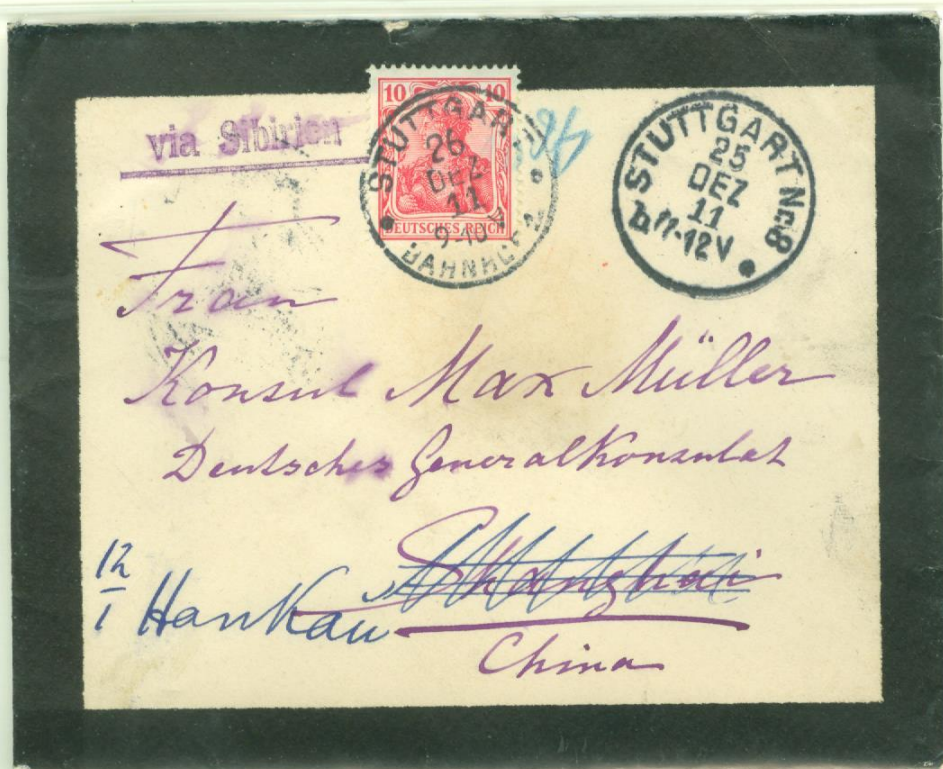 via Sibirien
10 10
DEUTSCHES REICH
STUTTGART
26
DEZ
11
9-10V
BAHNHOF 2
STUTTGART Nr. 8
25
DEZ
11
b 11-12V
Frau
Konsul Max Müller
Deutsches Generalkonsulat
Shanghai
12
1
Hankau
China